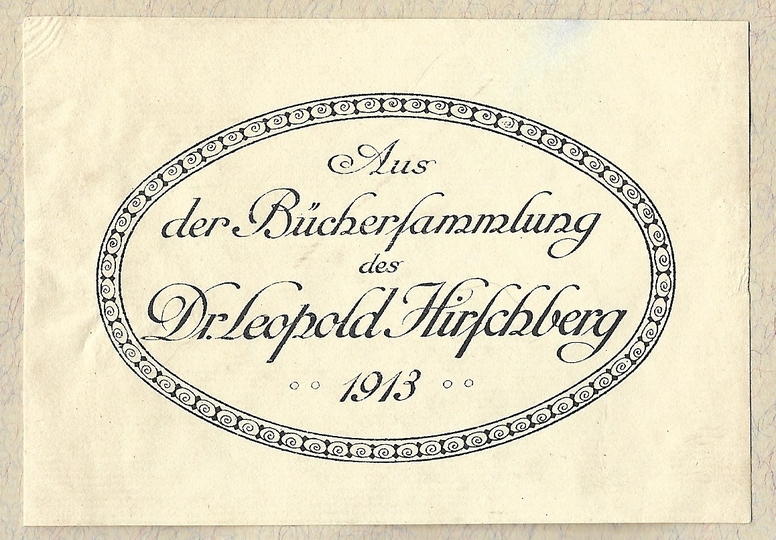 Aus
der Bücherſammlung
des
Dr. Leopold Hirſchberg
1913